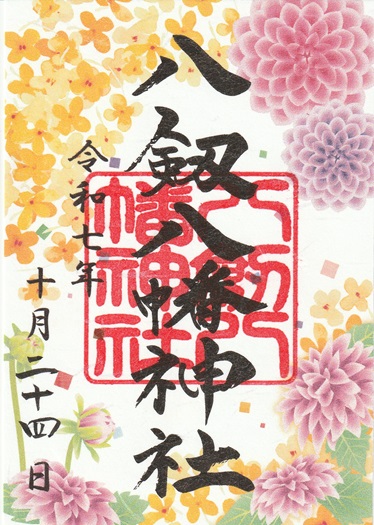 八剱八幡神社
令和七年
十月二十四日
八剱八幡神社